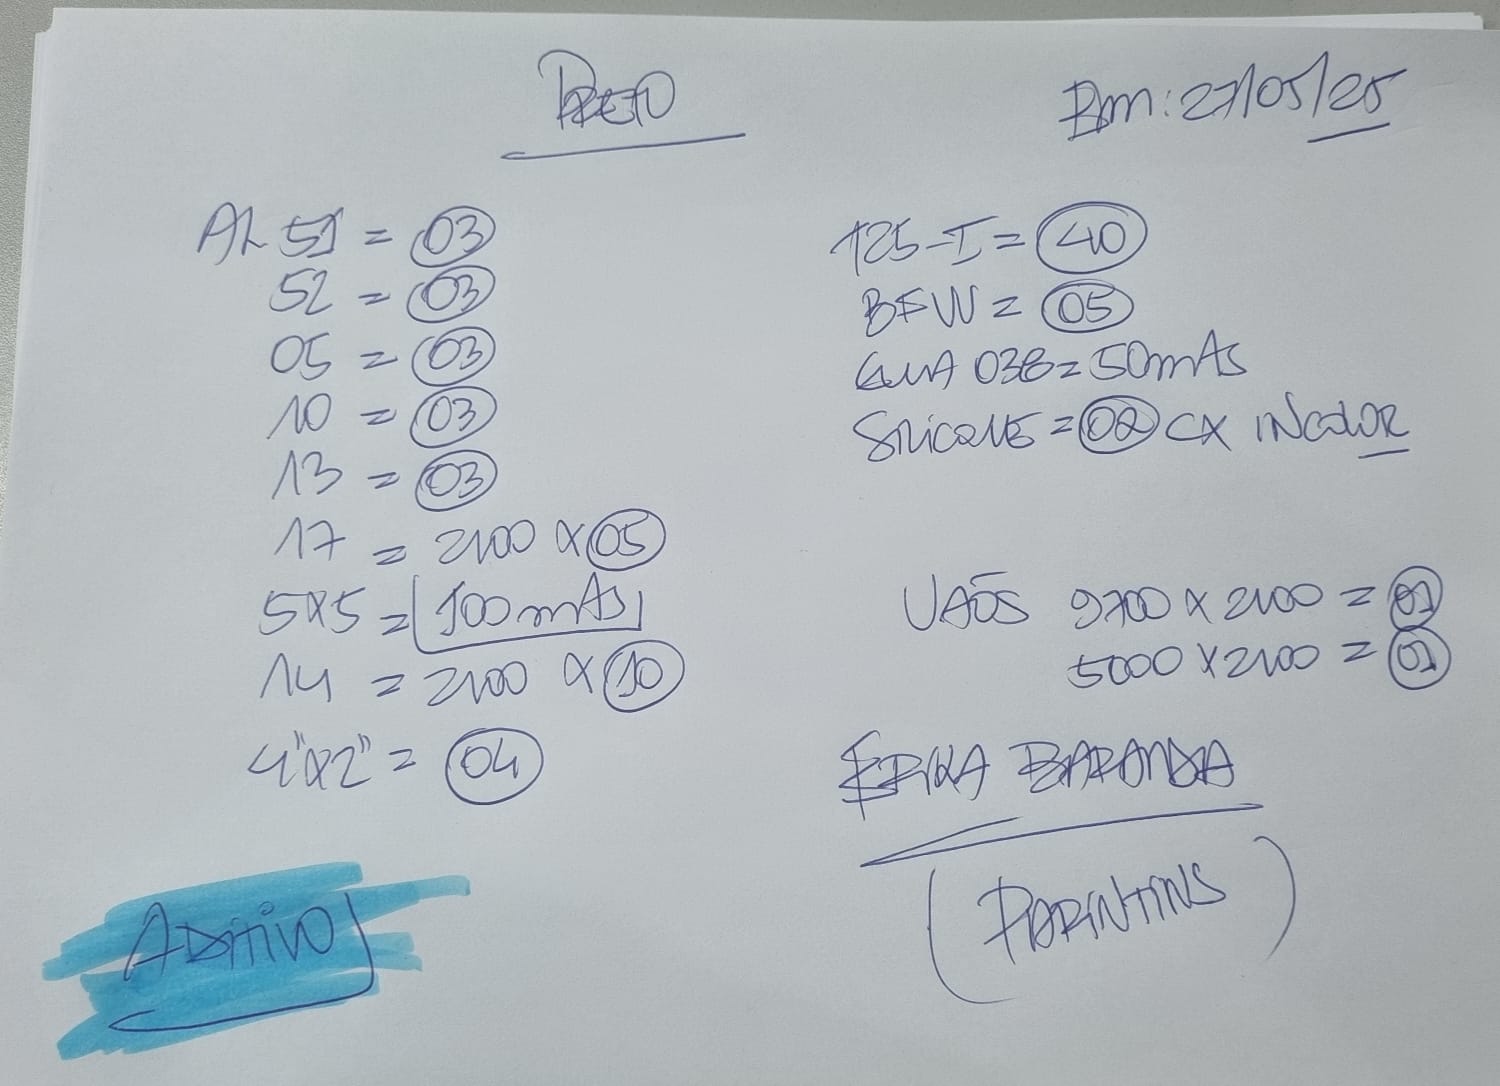 PRETO
Bm: 27/05/25
AL 51 = 03
52 = 03
05 = 03
10 = 03
13 = 03
17 = 2100 x 05
5x5 = 100 mts
14 = 2100 x 10
4"x2" = 04
ADITIVO
125-I = 40
BFW = 05
GUA 038 = 50mts
SILICONE = 02 CX INCOLOR
VAÕS 9700 x 2100 = 01
5000 x 2100 = 01
ERIKA BARANDA
(PARINTINS)